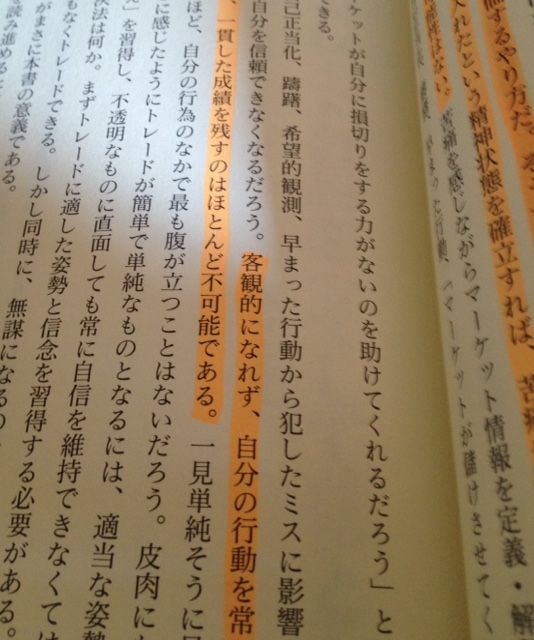 するやり方だ。
入れたという精神状態を確立すれば、苦
能性はない。苦痛を感じながらマーケット情報を定義・解
行動、「マーケットが儲けさせてく
ケットが自分に損切りをする力がないのを助けてくれるだろう」と
きる。
己正当化、躊躇、希望的観測、早まった行動から犯したミスに影響
自分を信頼できなくなるだろう。客観的になれず、自分の行動を常
、一貫した成績を残すのはほとんど不可能である。一見単純そうに
ほど、自分の行為のなかで最も腹が立つことはないだろう。皮肉に
に感じたようにトレードが簡単で単純なものとなるには、適当な姿勢
」を習得し、不透明なものに直面しても常に自信を維持できなくては
決法は何か。まずトレードに適した姿勢と信念を習得する必要がある。
もなくトレードできる。しかし同時に、無謀になるの
がまさに本書の意義である。
を読み進める